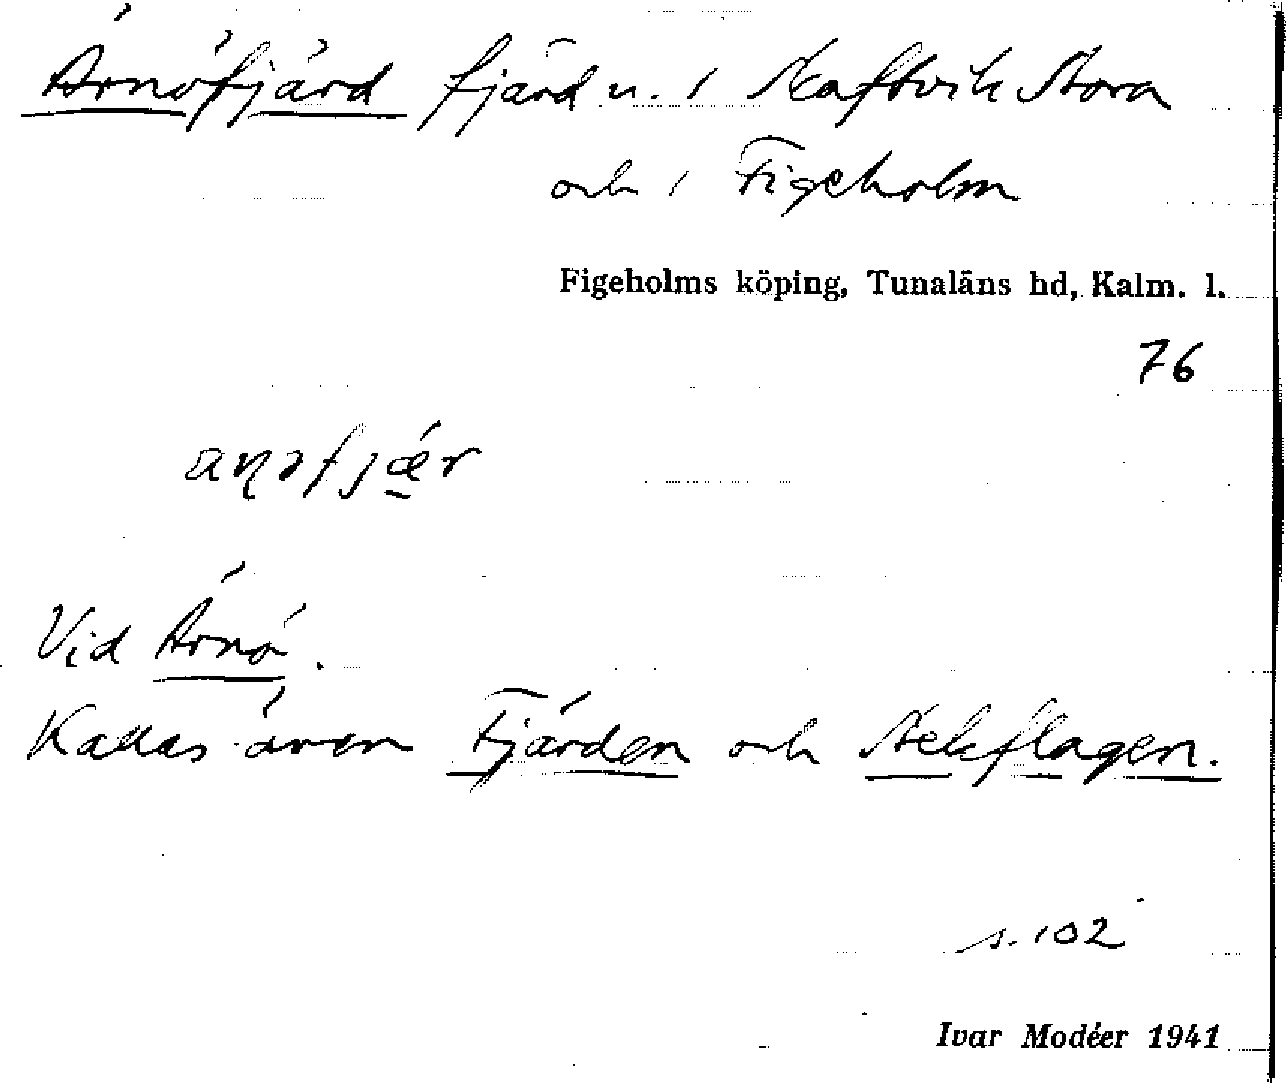 Årnöfjärd fjärd u. i Skaftvik Stora
och i Figeholm
Figeholms köping, Tunaläns hd, Kalm. l.
76
Vid Årnö.
Kallas även Fjärden och Stekflagen.
s. 102
Ivar Modéer 1941